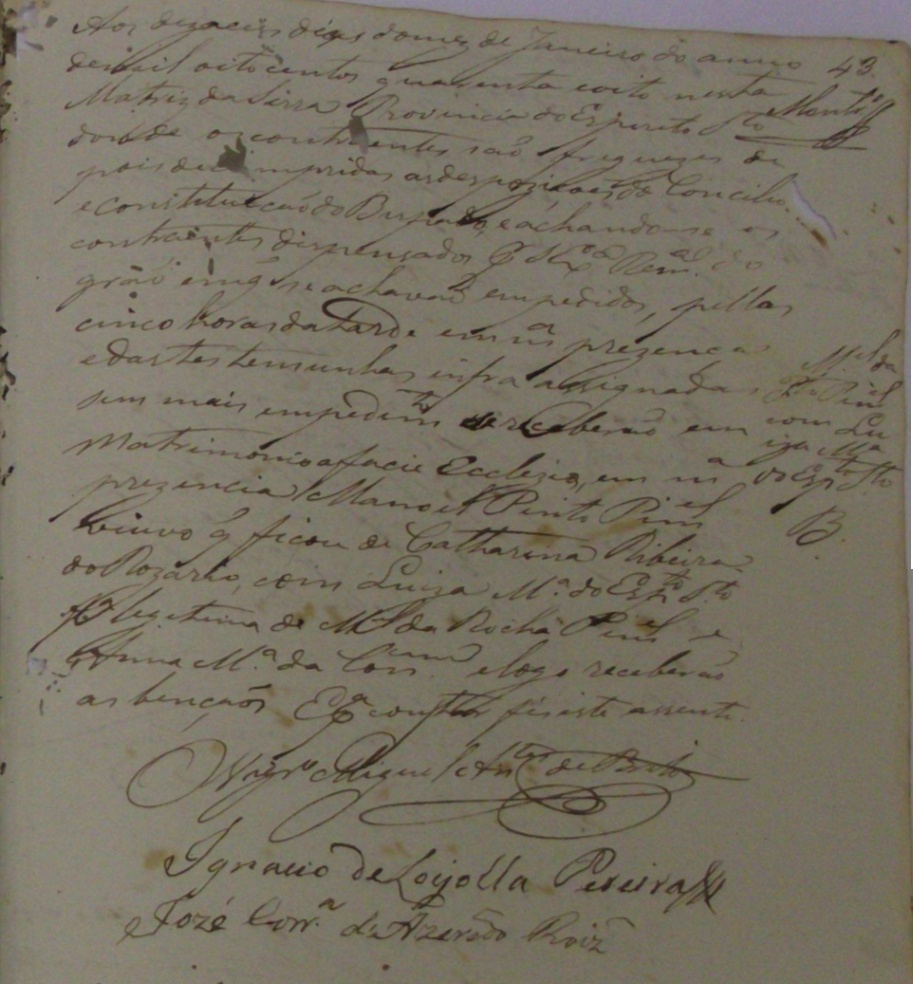 Aos dezaceis dias do mez de Janeiro do anno 43
de mil oitocentos quarenta e oito nesta
Matriz da Serra Provincia do Espirito Sto
donde os contraentes são freguezes de
pois de cumpridas as despozições do Concilio
e constituição do Bispado, e achando-se os
contraentes dispensados Rem.
gráo em q̃ se achavaõ empedidos, pellas
cinco horas da tarde em mª prezença
e das testemunhas infra assignadas
sem mais empedimto se receberaõ em
Matrimonio a facie Eccleziæ, em mª
prezencia Manoel Pinto Pimel
Viuvo q̃ ficou de Catharina Ribeira
do Rozario, com Luiza Mª. do Espto Sto
Fª legitima de Mel da Rocha Pimel e
Anna Mª. da Concam e logo receberaõ
as bençaõs Epª constar fis este assento.
O Vigrº Miguel Anto de Brito
Ignacio de Loyolla Pereira
Jozé Corrª. de Azeredo Roiz
Mel da
Pimel
com Lu
iza Mª
do Espto Sto
B.